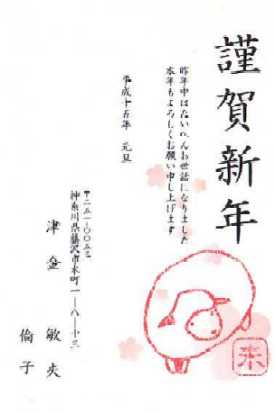 謹賀新年
昨年中はたいへんお世話になりました
本年もよろしくお願い申し上げます
平成十五年 元旦
〒二五一-〇〇五三
神奈川県藤沢市本町一-八-十三
津金 敏夫
倫子